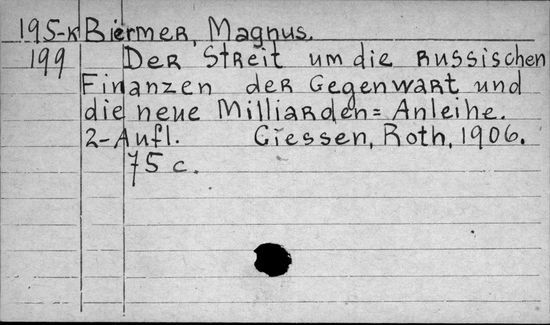 195-K Biermer, Magnus.
199 Der Streit um die russischen
Finanzen der Gegenwart und
die neue Milliarden=Anleihe.
2-Aufl. Giessen, Roth, 1906.
75 c.